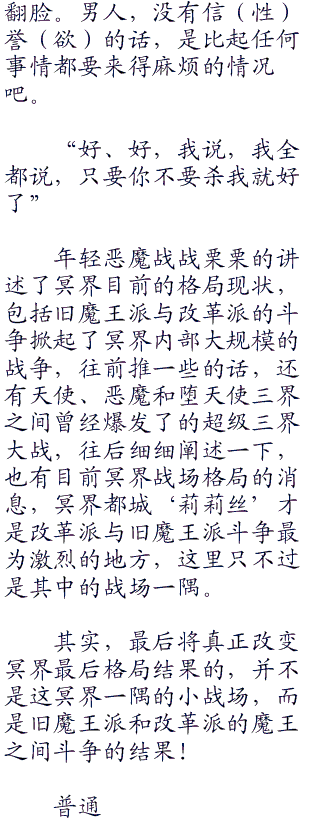 翻脸。男人，没有信（性）
誉（欲）的话，是比起任何
事情都要来得麻烦的情况
吧。
“好、好，我说，我全
都说，只要你不要杀我就好
了”
年轻恶魔战战栗栗的讲
述了冥界目前的格局现状，
包括旧魔王派与改革派的斗
争掀起了冥界内部大规模的
战争，往前推一些的话，还
有天使、恶魔和堕天使三界
之间曾经爆发了的超级三界
大战，往后细细阐述一下，
也有目前冥界战场格局的消
息，冥界都城‘莉莉丝’才
是改革派与旧魔王派斗争最
为激烈的地方，这里只不过
是其中的战场一隅。
其实，最后将真正改变
冥界最后格局结果的，并不
是这冥界一隅的小战场，而
是旧魔王派和改革派的魔王
之间斗争的结果！
普通